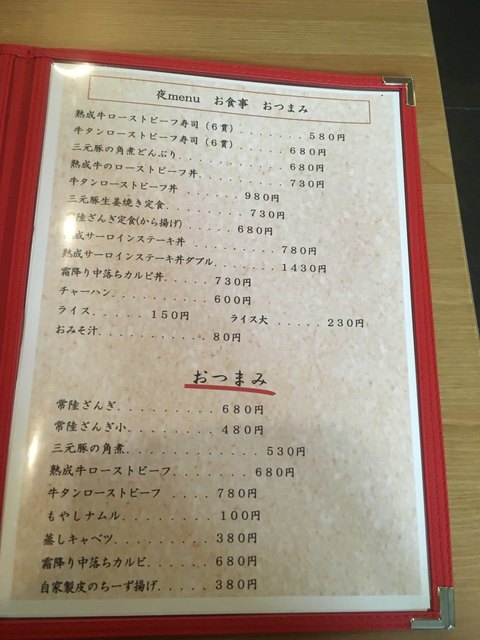 夜menu お食事 おつまみ
熟成牛ローストビーフ寿司(6貫)........580円
牛タンローストビーフ寿司(6貫)......680円
三元豚の角煮どんぶり...........680円
熟成牛のローストビーフ丼..........730円
牛タンローストビーフ丼.......980円
三元豚生姜焼き定食..........730円
陸ざんぎ定食(から揚げ)......680円
成サーロインステーキ丼..........780円
熟成サーロインステーキ丼ダブル.......1430円
霜降り中落ちカルビ丼.....730円
チャーハン..........600円
ライス......150円 ライス大.....230円
おみそ汁...........80円
おつまみ
常陸ざんぎ..........680円
常陸ざんぎ小.........480円
三元豚の角煮............530円
熟成牛ローストビーフ........680円
牛タンローストビーフ....780円
もやしナムル.........100円
蒸しキャベツ.........380円
霜降り中落ちカルビ......680円
自家製皮のちーず揚げ.....380円